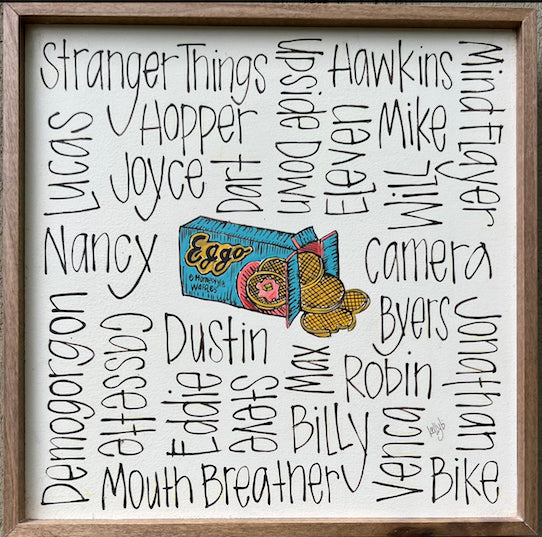 Stranger Things
Upside Down
Hawkins
Mind Flayer
Lucas
Hopper
Joyce
Dart
Eleven
Mike
Will
Nancy
Eggo
Camera
Byers
Demogorgon
Cassette
Dustin
Eddie
Steve
Max
Robin
Jonathan
Billy
Venca
Mouth Breather
Bike